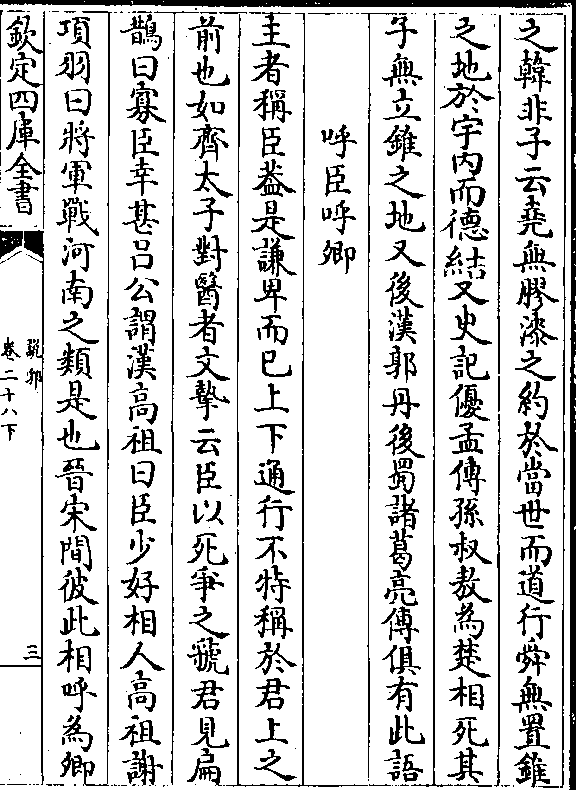 之韓非子云堯無膠漆之約於當世而道行舜無置錐
之地於宇内而德結又史記優孟傳孫叔敖為楚相死其
子無立錐之地又後漢郭丹後蜀諸葛亮傳俱有此語
呼臣呼卿
主者稱臣葢是謙卑而已上下通行不特稱於君上之
前也如齊太子對醫者文摯云臣以死爭之虢君見扁
鵲曰寡臣幸甚吕公謂漢高祖曰臣少好相人高祖謝
項羽曰將軍戰河南之類是也晉宋間彼此相呼為卿
欽定四庫全書
說郛
卷二十八下
三